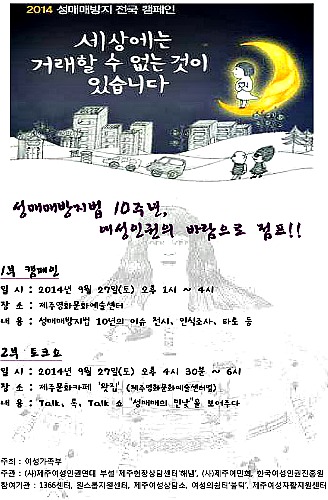 2014 성매매방지 전국 캠페인
세상에는
거래할 수 없는 것이
있습니다
성매매방지법 10주년,
여성인권의 바람으로 점프!!
1부 캠페인
일 시 : 2014년 9월 27일(토) 오후 1시 ~ 4시
장 소 : 제주영화문화예술센터
내 용 : 성매매방지법 10년의 이슈 전시, 인식조사, 타로 등
2부 토크쇼
일 시 : 2014년 9월 27일(토) 오후 4시 30분 ~ 6시
장 소 : 제주문화카페 '왓집' (제주영화문화예술센터옆)
내 용 : Talk, 톡, Talk 쇼 "성매매의 민낯"을 보여주다
주최 : 여성가족부
주관 : (사)제주여성인권연대 부설 제주현장상담센터'해냄', (사)제주여민회, 한국여성인권진흥원
참여기관 : 1366센터, 원스톱지원센터, 제주여성상담소, 여성의쉼터'불턱', 제주여성자활지원센터